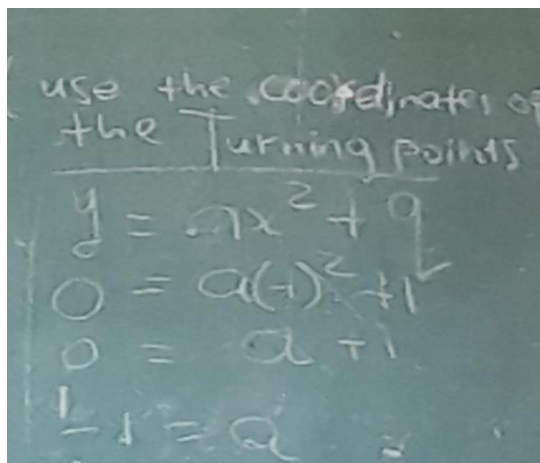 use the coordinates of
the Turning points
y = ax² + q
0 = a(-1)² + 1
0 = a + 1
-1 = a